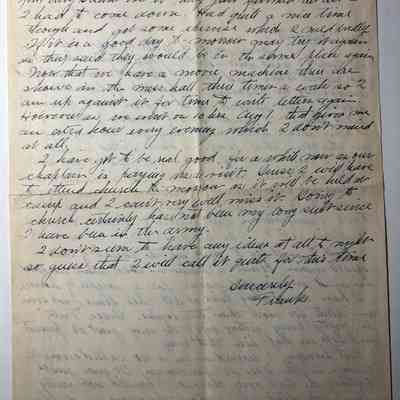 I had to come down. Had quite a nice time
though and got some exercise which I need badly.
If it is a good day to-morrow may try it again
as they said they would be in the same place again.
Now that we have a movie machine they are
shown in the mess hall three times a week so I
am up against it for time to write letters again.
However we on to Aug 1, that gives me
an extra hour every evening which I don't mind
at all.
I have got to be real good for a while now as our
chaplain is paying us a visit. Guess I will have
to attend church to-morrow as it will be held at
camp and I can't very well miss it. Going to
church certainly has not been my long suit since
I have been in the army.
I don't seem to have any ideas at all to-night
so guess that I will call it quits for this time
Sincerely
Frank